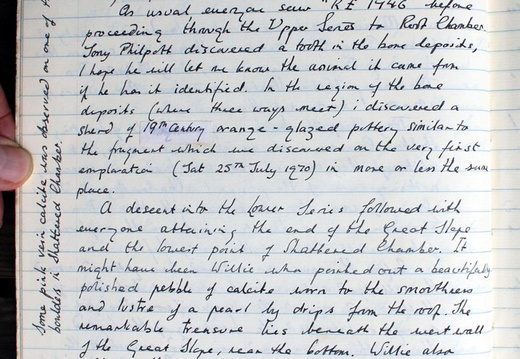 As usual everyone saw "R.E 1946" before
proceeding through the Upper Series to Root Chamber.
Tony Philpott discovered a tooth in the bone deposits,
I hope he will let me know the animal it came from
if he has it identified. In the region of the bone
deposits (where three ways meet) i discovered a
sherd of 19th Century orange-glazed pottery similar to
the fragment which we discovered on the very first
exploration (Sat 25th July 1970) in more or less the same
place.
A descent into the Lower Series followed with
everyone attaining the end of the Great Slope
and the lowest point of Shattered Chamber. It
might have been Willie who pointed out a beautifully
polished pebble of calcite worn to the smoothness
and lustre of a pearl by drips from the roof. The
remarkable treasure lies beneath the west wall
of the Great Slope, near the bottom. Willie also
Some pink vein calcite was observed on one of the
boulders in Shattered Chamber.